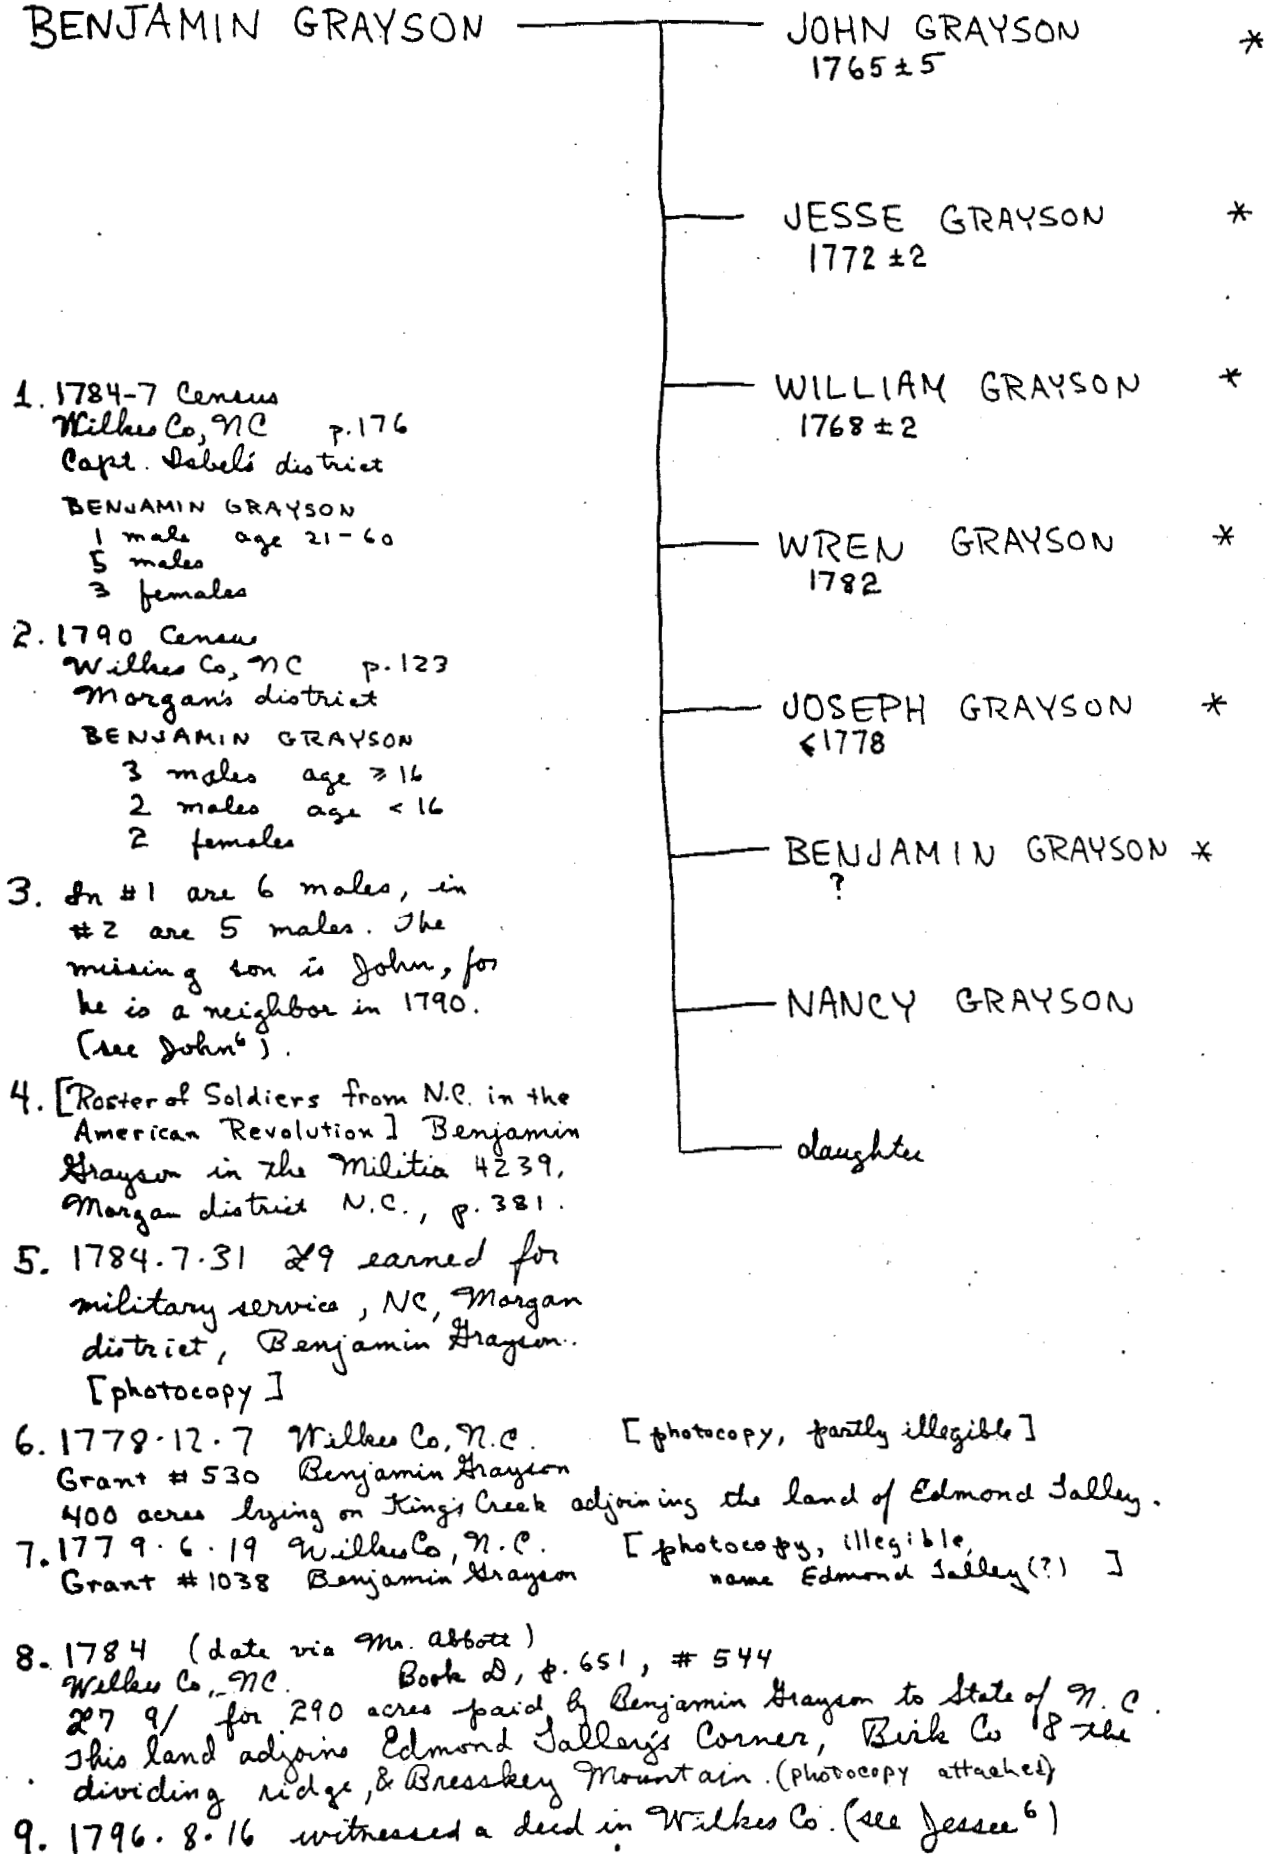 BENJAMIN GRAYSON
JOHN GRAYSON *
1765 ± 5
JESSE GRAYSON *
1772 ± 2
WILLIAM GRAYSON *
1768 ± 2
WREN GRAYSON *
1782
JOSEPH GRAYSON *
≤1778
BENJAMIN GRAYSON *
?
NANCY GRAYSON
daughter
1. 1784-7 Census
Wilkes Co, NC p.176
Capt. Isbel's district
BENJAMIN GRAYSON
1 male age 21-60
5 males
3 females
2. 1790 Census
Wilkes Co, NC p.123
Morgan's district
BENJAMIN GRAYSON
3 males age ≥ 16
2 males age < 16
2 females
3. In #1 are 6 males, in
#2 are 5 males. The
missing son is John, for
he is a neighbor in 1790.
(see John⁶).
4. [Roster of Soldiers from N.C. in the
American Revolution] Benjamin
Grayson in the Militia 4239,
Morgan district N.C., p. 381.
5. 1784.7.31 £9 earned for
military service, NC, Morgan
district, Benjamin Grayson.
[photocopy]
6. 1778.12.7 Wilkes Co, N.C. [photocopy, partly illegible]
Grant #530 Benjamin Grayson
400 acres lying on King's Creek adjoining the land of Edmond Talley.
7. 1779.6.19 Wilkes Co, N.C. [photocopy, illegible,
Grant #1038 Benjamin Grayson name Edmond Talley(?) ]
8. 1784 (date via Mr. Abbott)
Wilkes Co, NC. Book D, p.651, #544
£7 9/ for 290 acres paid by Benjamin Grayson to State of N.C.
This land adjoins Edmond Talley's Corner, Birk Co & the
dividing ridge, & Bresskey Mountain. (photocopy attached)
9. 1796.8.16 witnessed a deed in Wilkes Co. (see Jessee⁶)